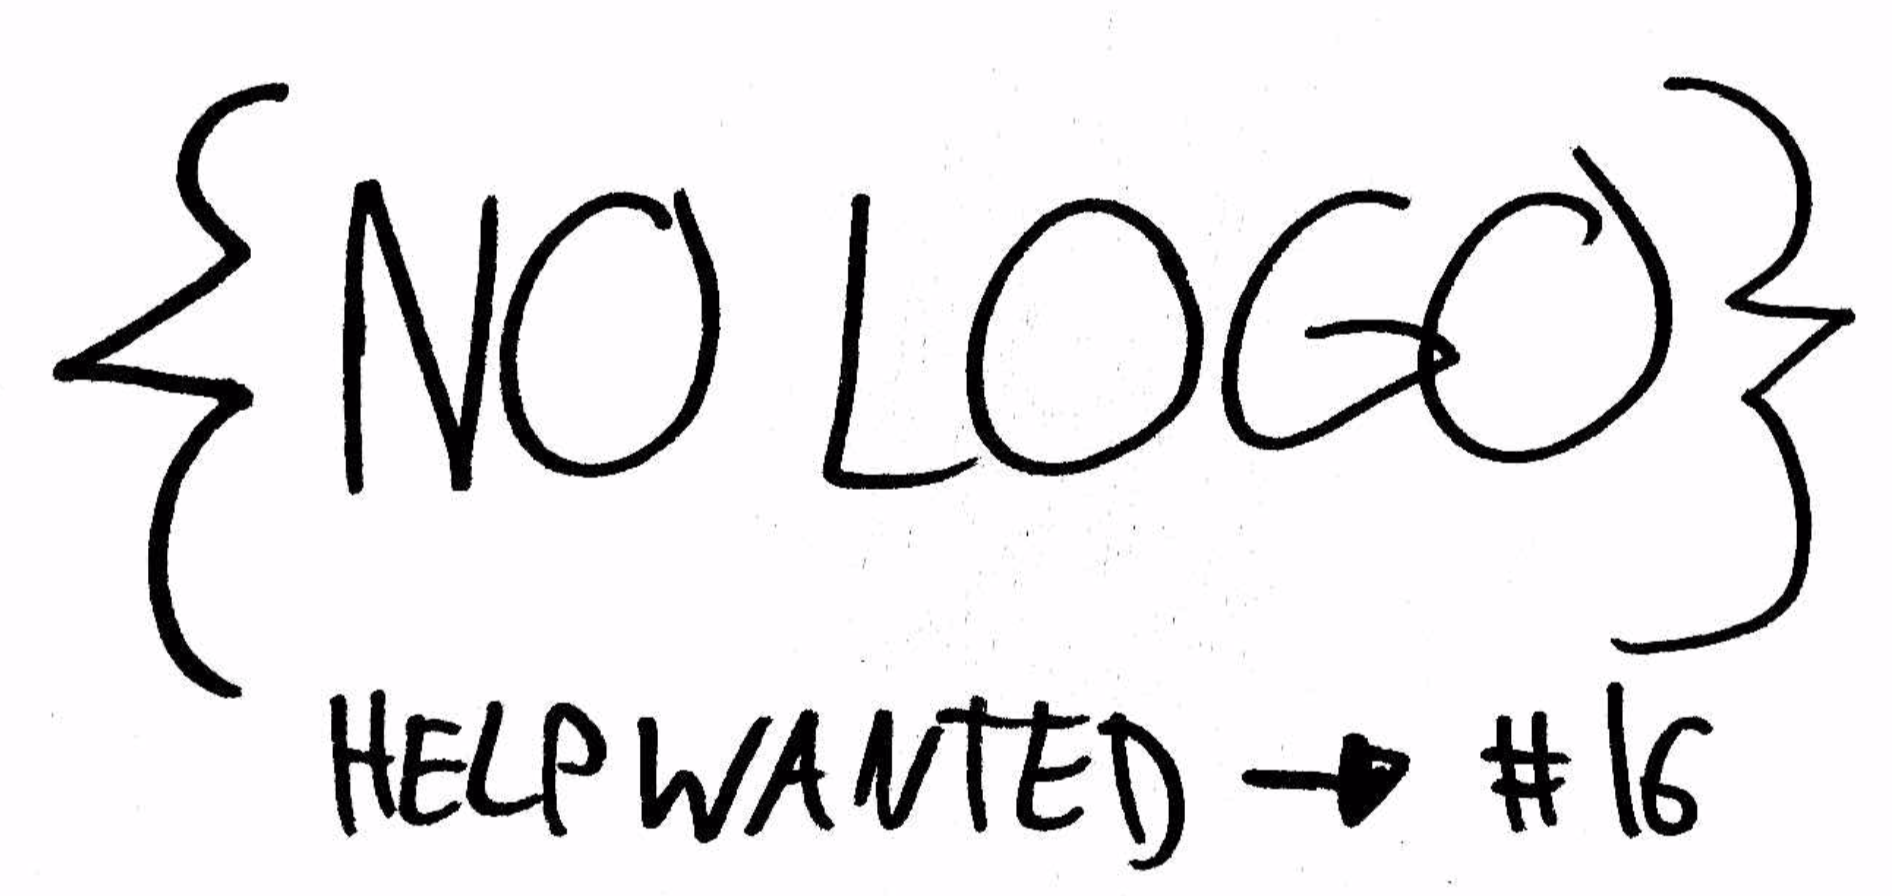 {NO LOGO}
HELP WANTED → #16